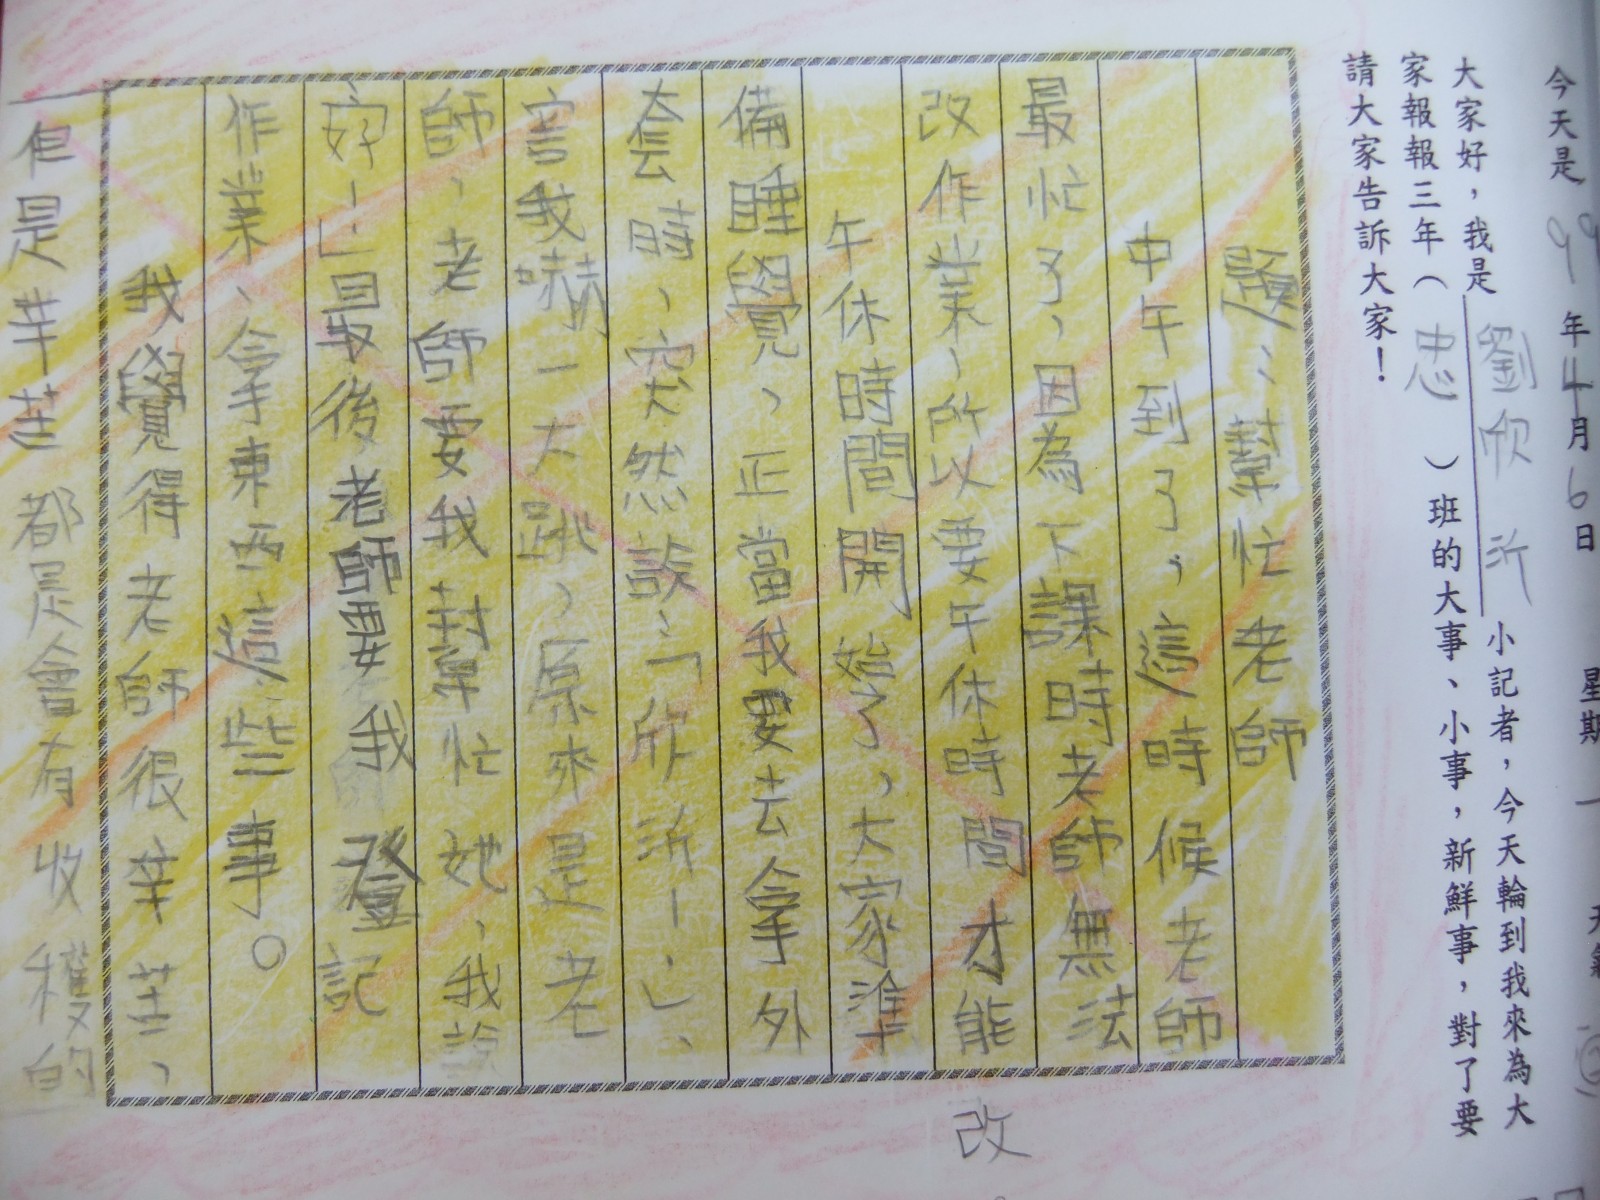 今天是99年4月6日 星期一 天氣
大家好，我是劉欣沂小記者，今天輪到我來為大
家報報三年（忠）班的大事、小事，新鮮事，對了要
請大家告訴大家！
題：幫忙老師
中午到了，這時候老師
最忙了，因為下課時老師無法
改作業，所以要午休時間才能
改
午休時間開始了，大家準
備睡覺，正當我要去拿外
套時，突然談：「欣沂－」、
害我嚇一大跳，原來是老
師，老師要我幫忙她，我說
好－」最後老師要我登記
作業、拿東西這些事。
我覺得老師很辛苦，
但是辛苦都是會有收穫的